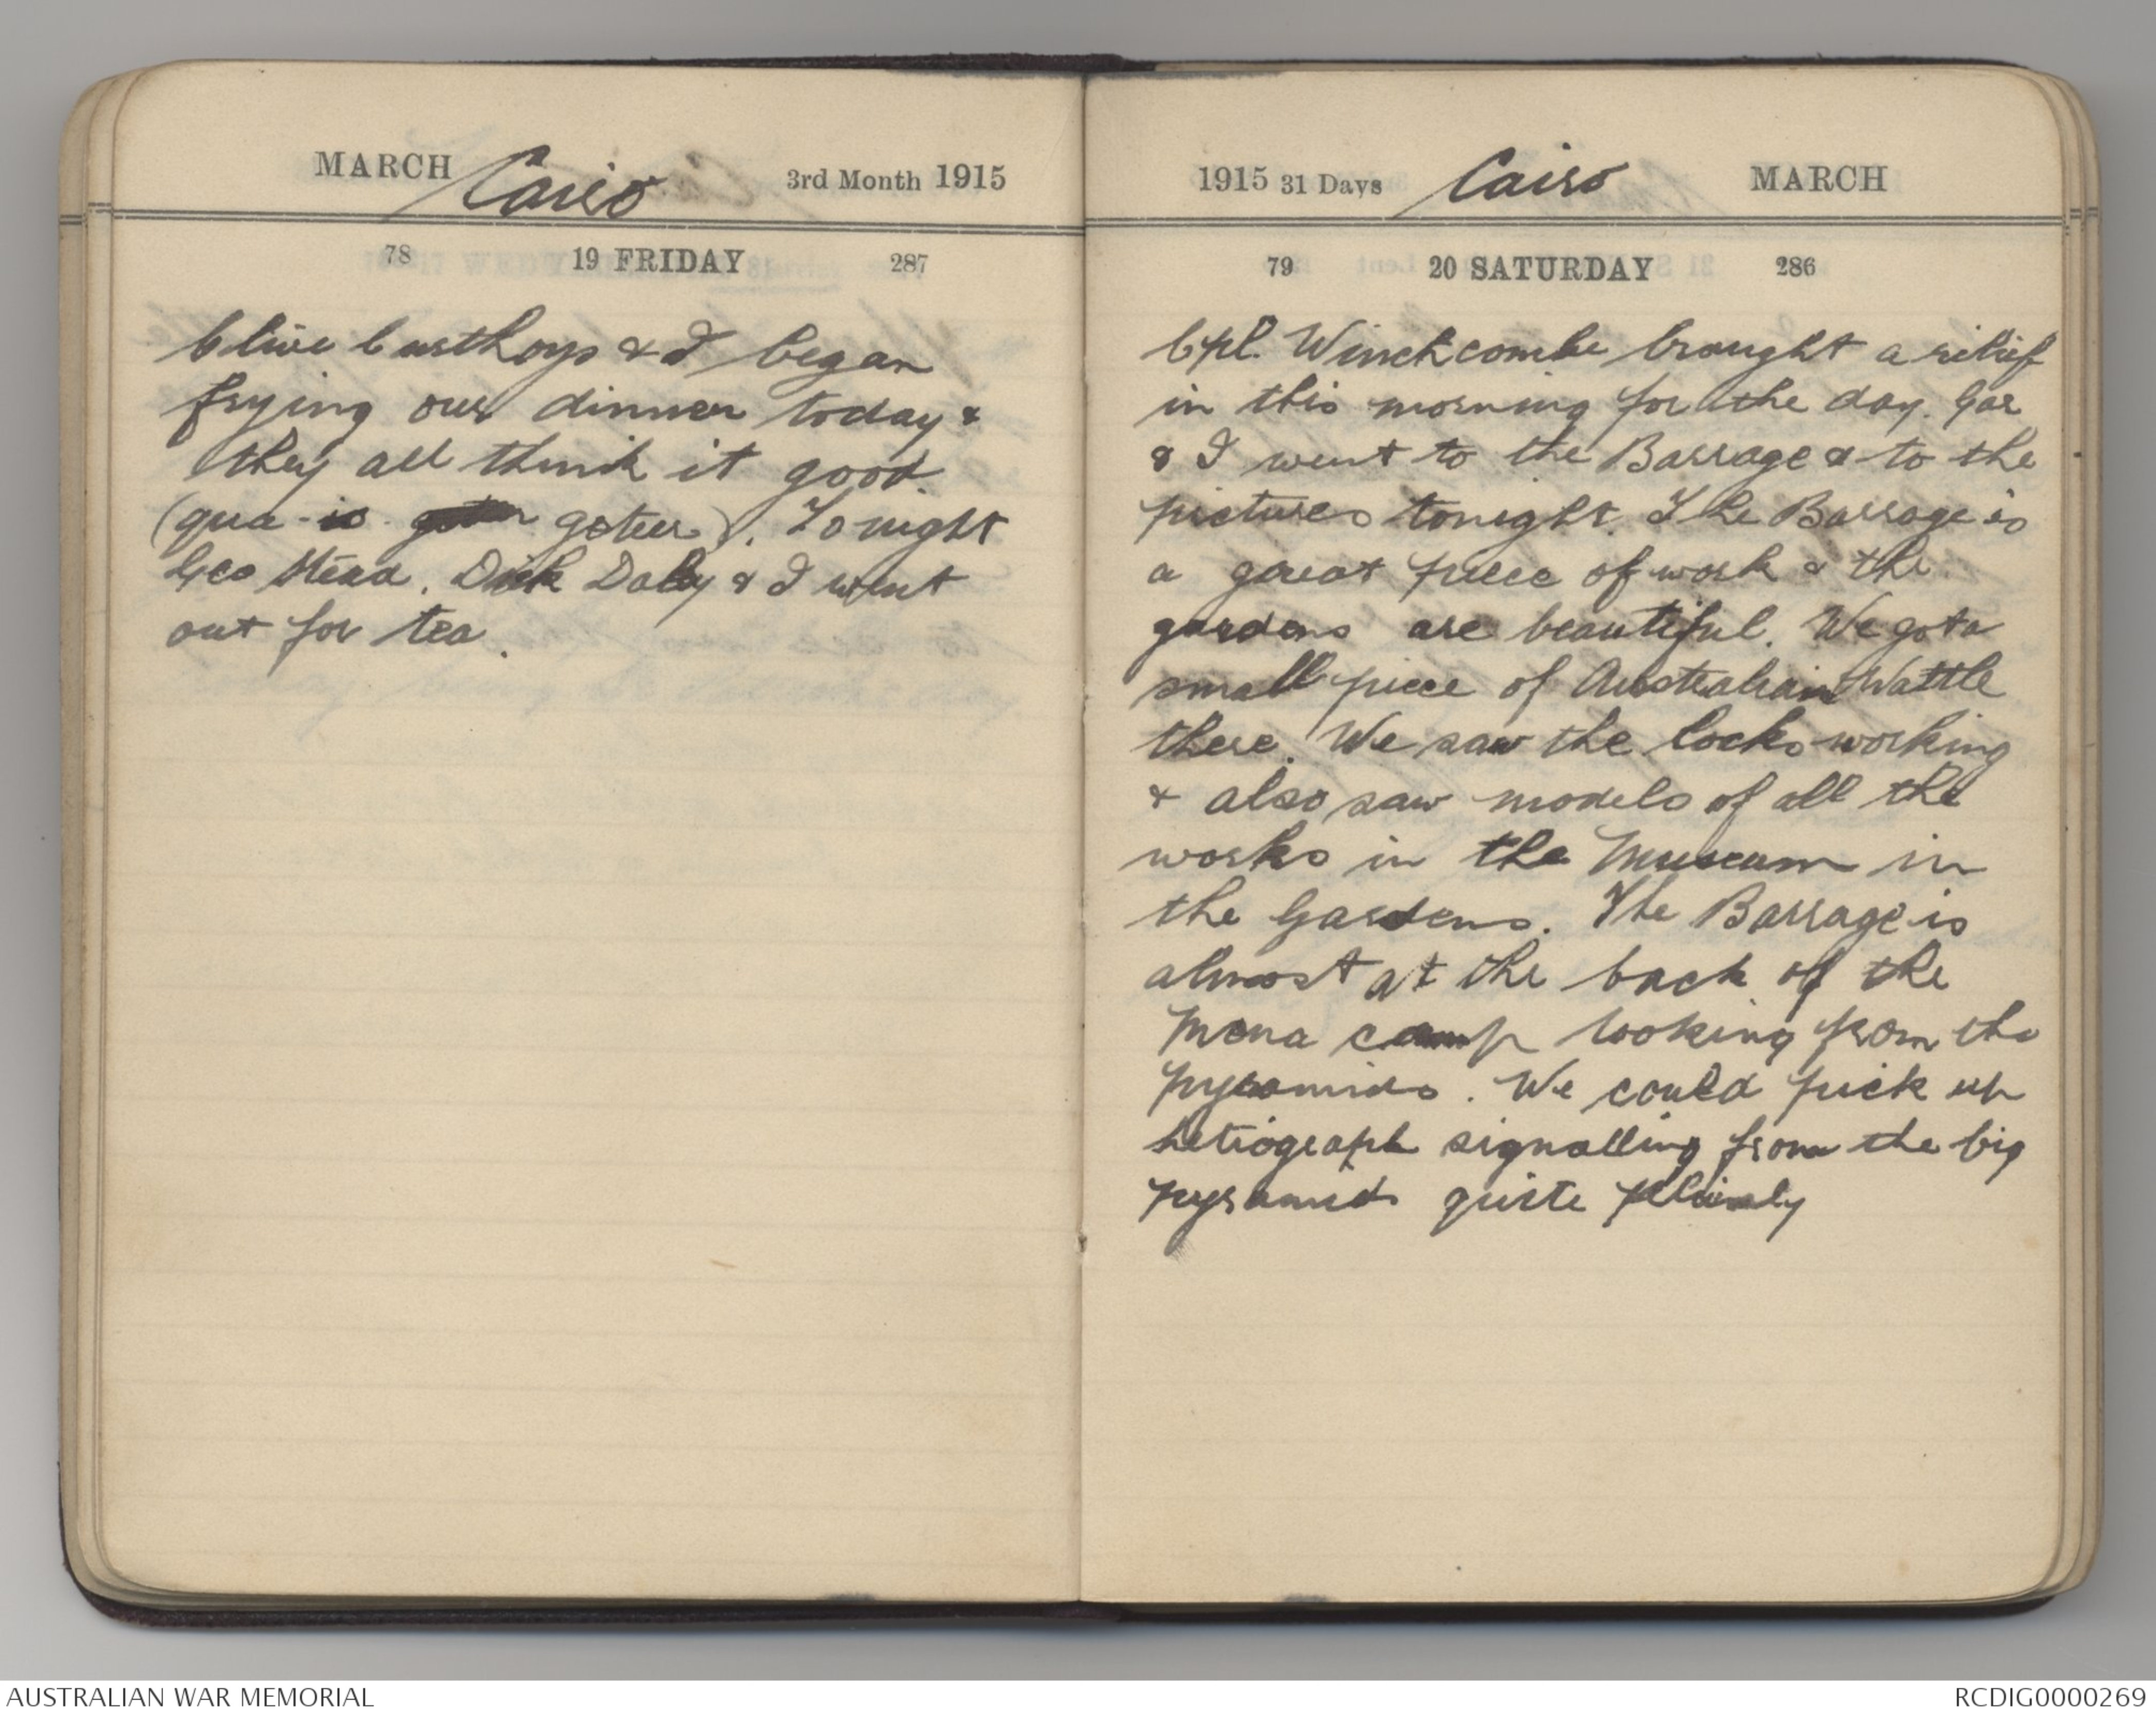 MARCH Cairo 3rd Month 1915
78 19 FRIDAY 287
Clive & I began
frying our dinner today &
they all think it good
(qua - is goteer). Tonight
Geo Mead, Dick Daley & I went
out for tea.
1915 31 Days Cairo MARCH
79 20 SATURDAY 286
Cpl. Winchcombe brought a relief
in this morning for the day.
& I went to the Barrage & to the
pictures tonight. The Barrage is
a great piece of work & the
gardens are beautiful. We got a
small piece of Australian Wattle
there. We saw the locks working
& also saw models of all the
works in the Museum in
the Gardens. The Barrage is
almost at the back of the
Mena camp looking from the
pyramids. We could pick up
heliograph signalling from the big
pyramids quite plainly
AUSTRALIAN WAR MEMORIAL RCDIG0000269